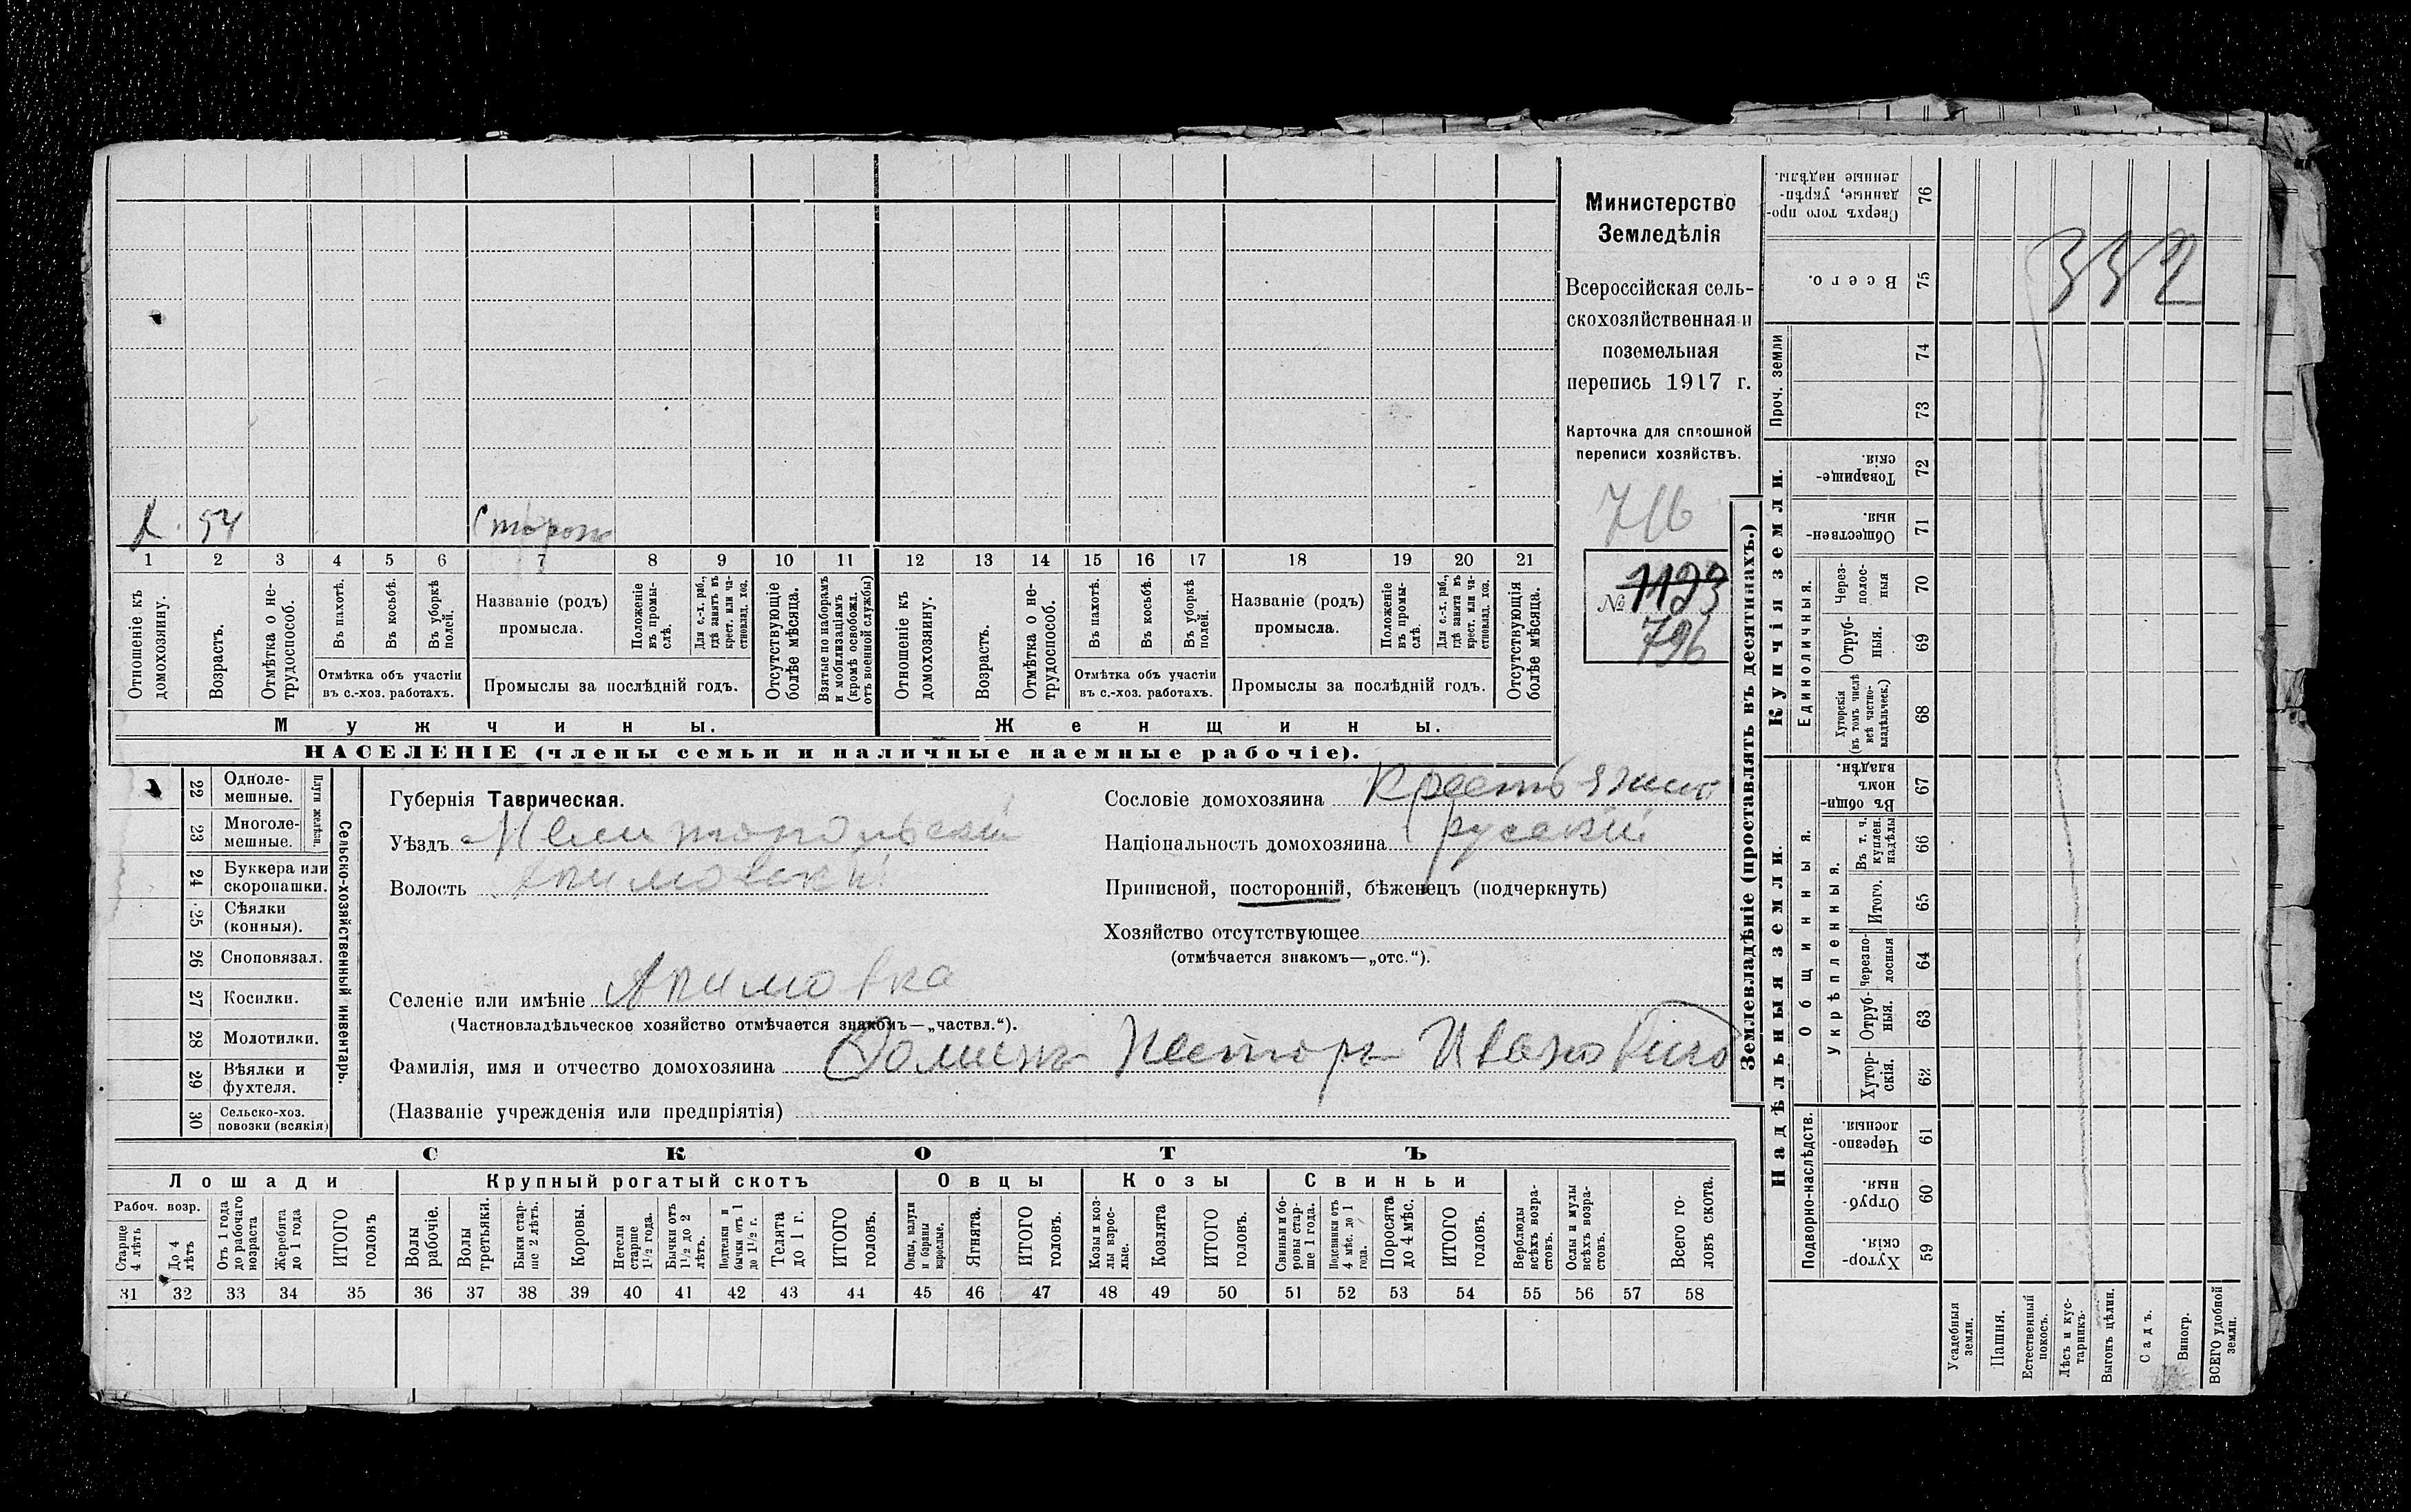 Министерство
Земледѣлія
Всероссійская сель-
скохозяйственная и
поземельная
перепись 1917 г.
Карточка для сплошной
переписи хозяйствъ.
716
№ 1193
796
54 Сторожъ
1 2 3 4 5 6 7 8 9 10 11 12 13 14 15 16 17 18 19 20 21
Отношеніе къ домохозяину.
Возрастъ.
Отмѣтка о не-трудоспособ.
Въ пахотѣ.
Въ косьбѣ.
Въ уборкѣ полей.
Отмѣтка объ участіи
въ с.-хоз. работахъ.
Названіе (родъ)
промысла.
Положеніе въ промы-слѣ.
Для с.-х. раб., гдѣ занятъ въ крест. или ча-стновлад. хоз.
Промыслы за послѣдній годъ.
Отсутствующіе болѣе мѣсяца.
Взятые по наборамъ и мобилизаціямъ (кромѣ освобожд. отъ военной службы)
Отношеніе къ домохозяину.
Возрастъ.
Отмѣтка о не-трудоспособ.
Въ пахотѣ.
Въ косьбѣ.
Въ уборкѣ полей.
Отмѣтка объ участіи
въ с.-хоз. работахъ.
Названіе (родъ)
промысла.
Положеніе въ промы-слѣ.
Для с.-х. раб., гдѣ занята въ крест. или ча-стновлад. хоз.
Промыслы за послѣдній годъ.
Отсутствующія болѣе мѣсяца.
Мужчины.
Женщины.
НАСЕЛЕНІЕ (члены семьи и наличные наемные рабочіе).
22 Одноле-мешные.
23 Многоле-мешные.
Плуги желѣзн.
24 Буккера или скоропашки.
25 Сѣялки (конныя).
26 Сноповязал.
27 Косилки.
28 Молотилки.
29 Вѣялки и фухтеля.
30 Сельско-хоз. повозки (всякія)
Сельско-хозяйственный инвентарь.
Губернія Таврическая.
Уѣздъ Мелитопольскій
Волость Акимовскій
Селеніе или имѣніе Акимовка
(Частновладѣльческое хозяйство отмѣчается знакомъ—„частвл.“).
Фамилія, имя и отчество домохозяина Несторъ Ивановичъ
(Названіе учрежденія или предпріятія)
Сословіе домохозяина Крестьянинъ
Національность домохозяина русскій
Приписной, посторонній, бѣженецъ (подчеркнуть)
Хозяйство отсутствующее
(отмѣчается знакомъ—„отс.“).
СКОТЪ
Лошади
Крупный рогатый скотъ
Овцы
Козы
Свиньи
Рабоч. возр.
Старше 4 лѣтъ
До 4 лѣтъ
Отъ 1 года до рабочаго возраста
Жеребята до 1 года
ИТОГО головъ
Волы рабочіе.
Волы третьяки.
Быки стар-ше 2 лѣтъ.
Коровы.
Нетели старше 1 1/2 года.
Бычки отъ 1 1/2 до 2 лѣтъ.
Подтелки и бычки отъ 1 до 1 1/2 г.
Телята до 1 г.
ИТОГО головъ.
Овцы, валухи и бараны взрослые.
Ягнята.
ИТОГО головъ.
Козы и коз-лы взрос-лые.
Козлята
ИТОГО головъ.
Свиньи и бо-ровы стар-ше 1 года.
Подсвинки отъ 4 мѣс. до 1 года.
Поросята до 4 мѣс.
ИТОГО головъ.
Верблюды всѣхъ возра-стовъ.
Ослы и мулы всѣхъ возра-стовъ.
Всего го-ловъ скота.
31 32 33 34 35 36 37 38 39 40 41 42 43 44 45 46 47 48 49 50 51 52 53 54 55 56 57 58
Землевладѣніе (проставлять въ десятинахъ.)
Надѣльныя земли.
Купчія земли.
Проч. земли
Подворно-наслѣдств.
Общинныя.
Укрѣпленныя.
Единоличныя.
Сверхъ того про-данные, укрѣп-ленные надѣлы. 76
Всего. 75
74
73
Товарище-скія. 72
Обществен-ныя. 71
Через-полос-ныя 70
Отруб-ныя. 69
Хуторскія (въ томъ числѣ всѣ частно-владѣльческ.) 68
Въ общин-номъ владѣн. 67
Въ т. ч. куплен. надѣлы 66
Итого. 65
Черезпо-лосныя 64
Отруб-ныя. 63
Хутор-скія. 62
Черезпо-лосныя. 61
Отруб-ныя. 60
Хутор-скія. 59
332
Усадебныя земли.
Пашня.
Естественный покосъ.
Лѣсъ и кус-тарникъ.
Выгонъ цѣлин.
Садъ.
Виногр.
ВСЕГО удобной земли.